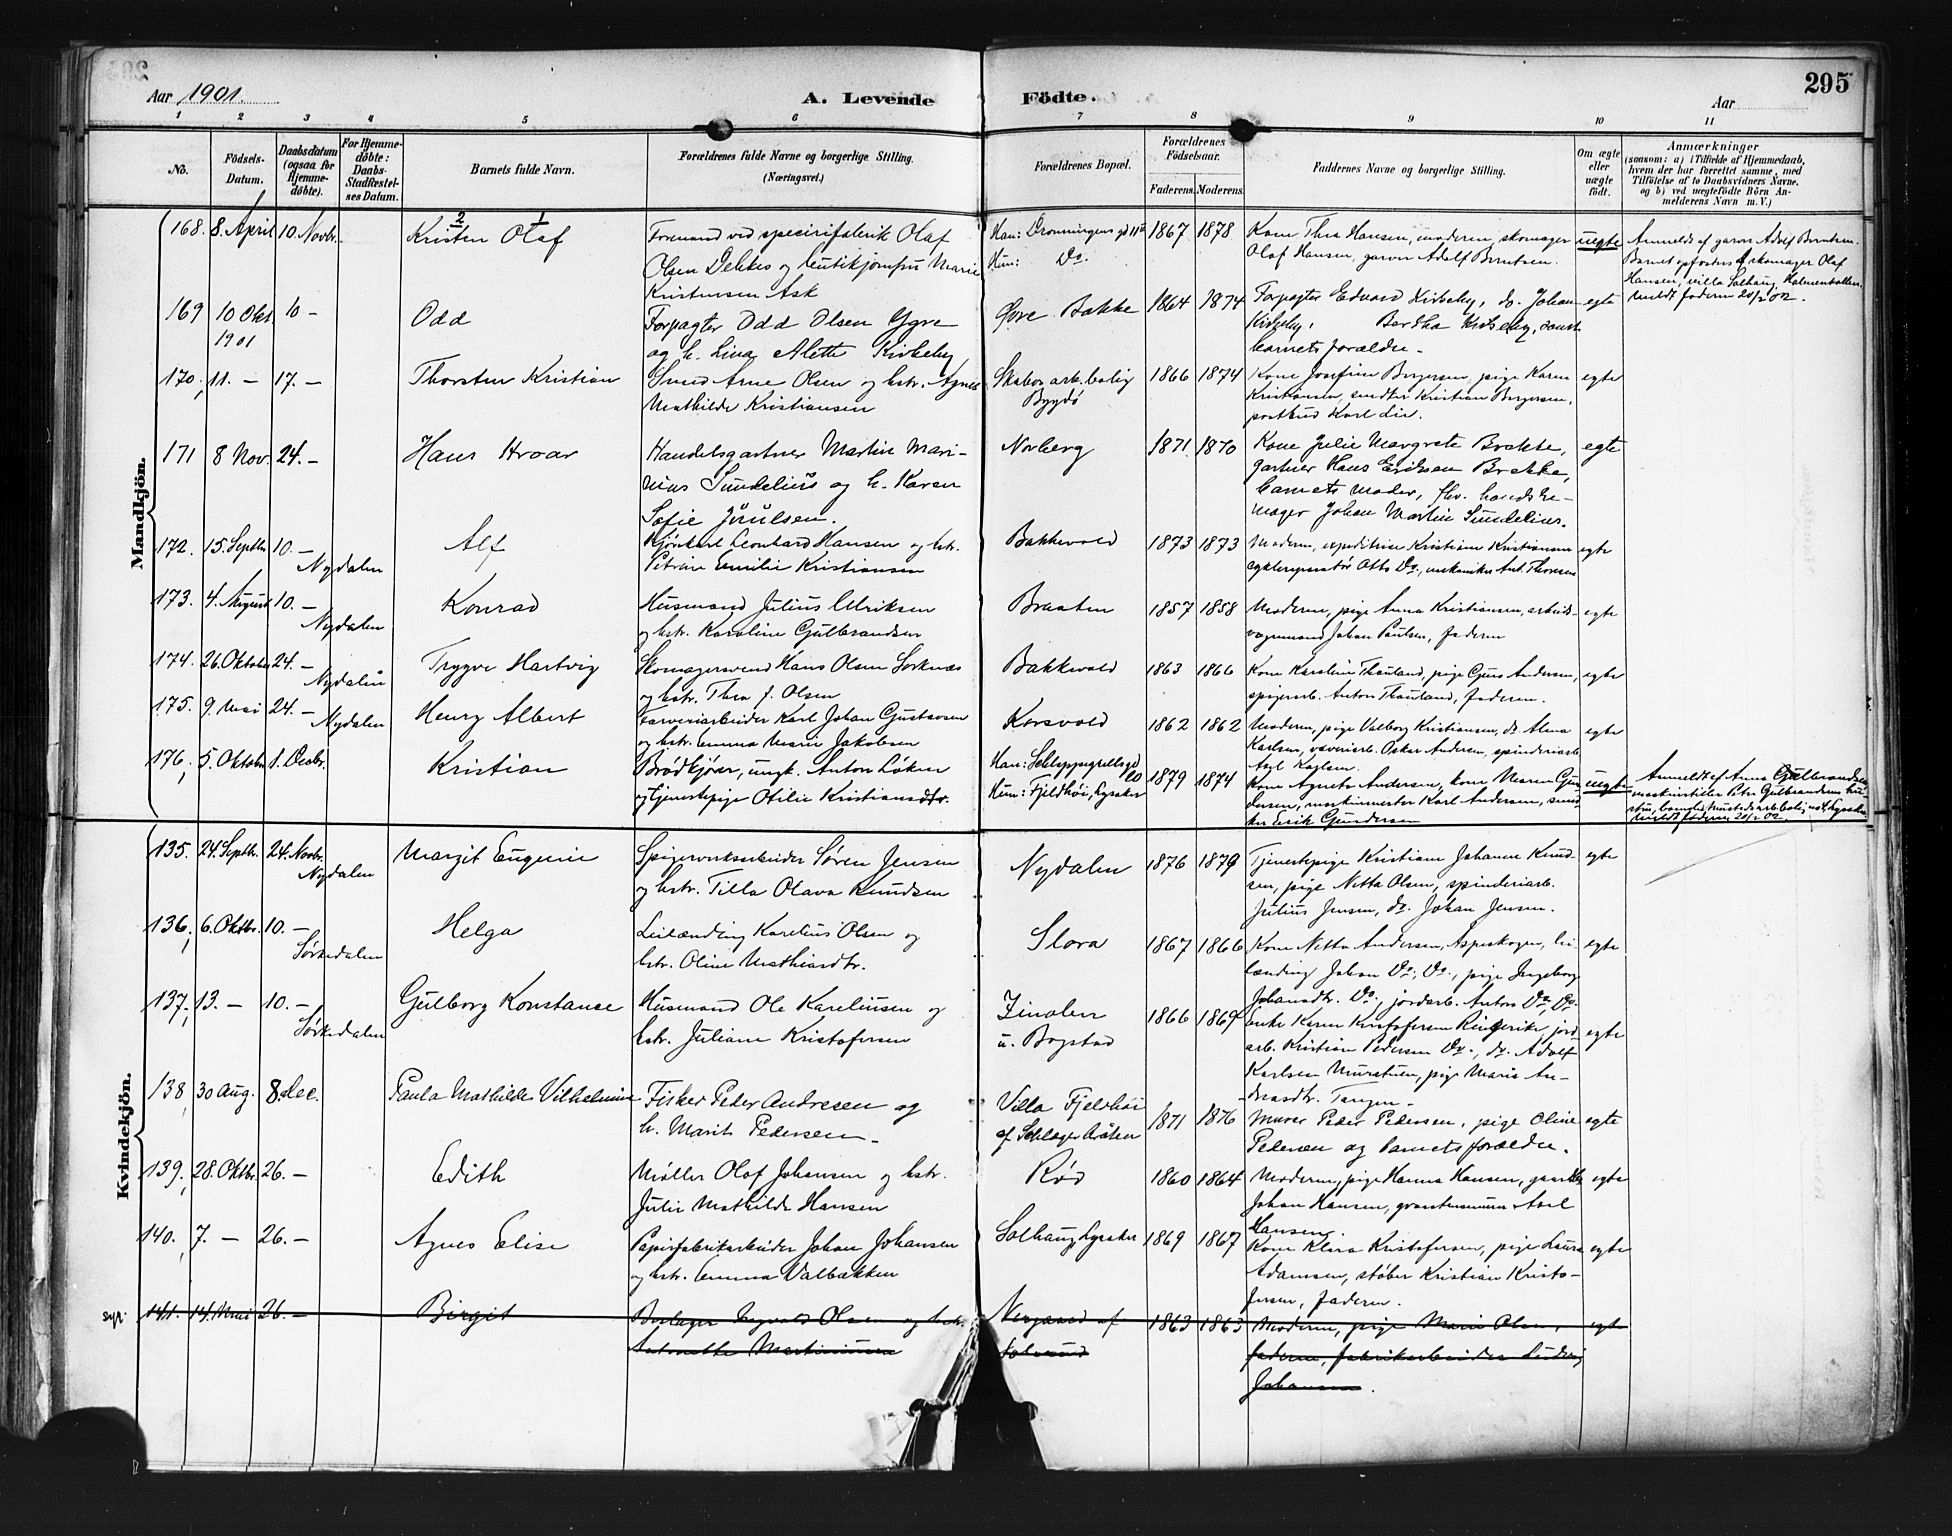 295
Aar 1901.
A. Levende Födte.
Aar
1 2 3 4 5 6 7 8 9 10 11
No.
Födsels-Datum.
Daabsdatum (ogsaa for Hjemme-döbte).
For Hjemme-döbte: Daabs-Stadfæstel-ses Datum.
Barnets fulde Navn.
Forældrenes fulde Navne og borgerlige Stilling. (Næringsvei.)
Forældrenes Bopæl.
Forældrenes Födselsaar.
Faderens. Moderens.
Faddernes Navne og borgerlige Stilling.
Om ægte eller uægte født.
Anmærkninger
(saasom: a) i Tilfælde af Hjemmedaab,
hvem der har forrettet samme, med
Tilføielse af to Daabsvidners Navne,
og b) ved uægtefødte Börn An-
melderens Navn m. V.)
Mandkjön.
168. 8. April 10. Novbr.
2 1
Kristen Olaf
Formand ved specerifabrik Olaf
Olsen og butikjomfru Marie
Kristensen Ask
Han: Dronningens gd 11
Hun: Do.
1867 1878
Kone Thea Hansen, moderen, skomager
Olaf Hansen, garver Adolf Berntsen.
uegte
Anmeldt af garver Adolf Berntsen.
Barnet opfostres af skomager Olaf
Hansen, villa Solhaug, Holmenkollen.
169 10 Okt. 1901 10 –
Odd
Forpagter Odd Olsen Ygre
og h. Lina Alette Kirkeby
Øvre Bakke
1864 1874
Forpagter Edvard Kirkeby, do. Johan
Kirkeby, Bertha Kirkeby, samt
barnets forældre.
egte
170, 11. – 17. –
Thorsten Kristian
Smed Arne Olsen og hstr. Agnes
Mathilde Kristiansen
Skabos arb.bolig
Bygdö
1866 1874
Kone Josefine Bergersen, pige Karen
Kristiansen, smedker Kristian Bergersen,
postbud Karl Lie.
egte
171 8 Nov. 24. –
Hans Hroar
Handelsgartner Martin Mari-
nius Sundelius og h. Karen
Sofie Jörulsen.
Norberg
1871 1870
Kone Julie Margrete Brække,
gartner Hans Eriksen Brække,
barnets moder, fhv. handske-
mager Johan Martin Sundelius.
egte
172. 15. Septbr. 10. –
Nydalen
Alf
Kjörekarl Leonhard Hansen og hstr.
Petrine Emilie Kristiansen
Bakkevold
1873 1873
Moderen, expeditrice Kristiane Kristiansen
cyklereparatör Otto Do., mekaniker Ant. Thoresen
egte
173. 4. August 10. –
Nydalen
Konrad
Husmand Julius Ulriksen
og hstr. Karoline Gulbrandsen
Braaten
1857 1858
Moderen, pige Anna Kristiansen, arbeids-
vognmand Johan Paulsen, faderen
egte
174. 26. Oktober 24. –
Nydalen
Trygve Hartvig
Skomagersvend Hans Olsen Sorknæs
og hstr. Thea f. Olsen
Bakkevold
1863 1866
Kone Karoline Thauland, pige Andersen,
spigerarb. Anton Thauland, faderen.
egte
175. 9. Mai 24. –
Nydalen
Henry Albert
Farveriarbeider Karl Johan Gustavsen
og hstr. Emma Marie Jakobsen
Korsvold
1862 1862
Moderen, pige Valborg Kristiansen, do. Alma
Karlsen, væveriarb. Oskar Andersen, spinderiarb.
Axel Karlsen
egte
176, 5. Oktober 1. Decbr.
Kristian
Brödkjörer, ungk. Anton Löken
og tjenestepige Otilie Kristiansdtr.
Han: Schleppegrellsgd 20
Hun: Fjeldhöi, Lysaker
1879 1874
Kone Agnete Andersen, kone Maren Gun-
dersen, maskinmester Karl Andersen, smed
Erik Gundersen
uegte
Anmeldt af Anna Gulbrandsen
maskinstiller Peter Gulbrandsens hu-
stru, Lysaker
Meldt faderen
Kvindekjön.
135. 24. Septbr. 24. Novbr.
Nydalen
Margit Eugenie
Spigerverksarbeider Søren Jensen
og hstr. Tilla Olava Knudsen
Nydalen
1876 1879
Tjenestepige Kristiane Johanne Knud-
sen, pige Netta Olsen, spinderiarb.
Julius Jensen, do. Johan Jensen.
egte
136, 6. Oktbr. 10. –
Sörkedalen
Helga
Leilænding Karelius Olsen og
hstr. Oline Mathiasdtr.
Slora
1867 1866
Kone Netta Andersen, Aspeskogen, lei-
lænding Johan Do., Do., pige Ingeborg
Johansdtr. Do., jordarb. Anton Do., Do.
egte
137, 13. – 10. –
Sörkedalen
Gulborg Konstanse
Husmand Ole Kareliusen og
hstr. Juliane Kristofersen
Zinolen
u. Bogstad
1866 1869
Enke Karen Kristofersen Ringerike, jord-
arb. Kristian Pedersen Do., do. Adolf
Karlsen Murstuen, pige Marie An-
dreasdtr. Tangen.
egte
138, 30 Aug. 8 Dec.
Paula Mathilde Vilhelmine
Fisker Peder Andresen og
h. Marit Pedersen.
Villa Fjeldhöi
af Schlager Aråsen
1871 1876
Murer Peder Pedersen, pige Oline
Pedersen og barnets forældre.
egte
139, 28. Oktbr. 26. –
Edith
Møller Olof Johansen og hstr.
Julie Mathilde Hansen
Röd
1860 1864
Moderen, pige Hanna Hansen,
Johan Hansen, Axel
Hansen.
egte
140, 7. – 26. –
Agnes Elise
Papirfabrikarbeider Johan Johansen
og hstr. Emma Valbækken
Solhaug, Lysaker
1869 1867
Kone Klara Kristofersen, pige Laura
Adamsen, støber Kristian Kristo-
fersen, faderen.
egte
141. 14. Mai 26. –
Birgit
Olsen og hstr.
Antonette Martiniussen
1863 1863
Moderen, pige Marie Olsen,
faderen, fabrikarbeider Ludvig
Johansen.
egte